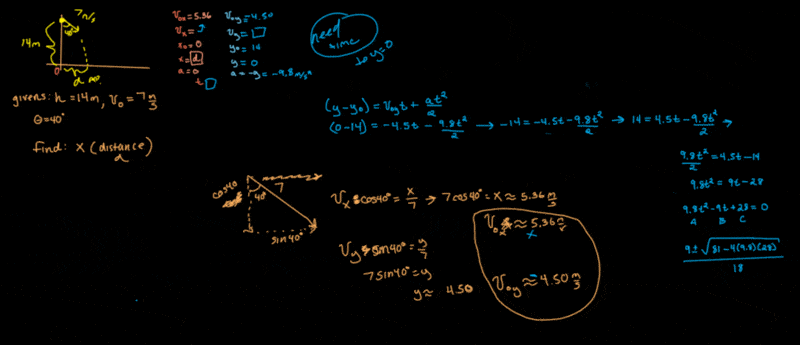 7 m/s
40°
14m
0
d
givens: h = 14m, V₀ = 7 m/s
θ = 40°
find: X (distance)
d
V₀ₓ = 5.36
Vₓ = ↗
x₀ = 0
x = d
a = 0
t
V₀y = 4.50
Vy =
y₀ = 14
y = 0
a = -g = -9.8 m/s²
need
time
to y=0
(y-y₀) = V₀y t + at²/2
(0-14) = -4.5t - 9.8t²/2 → -14 = -4.5t - 9.8t²/2 → 14 = 4.5t - 9.8t²/2 →
9.8t²/2 = 4.5t - 14
9.8t² = 9t - 28
9.8t² - 9t + 28 = 0
A B C
9 ± √81 - 4(9.8)(28)
18
cos40
40°
7
sin40°
Vₓ cos40° = x/7 → 7cos40° = x ≈ 5.36 m/s
V₀ₓ ≈ 5.36 m/s
x
Vy sin40° = y/7
7sin40° = y
y ≈ 4.50
V₀y ≈ 4.50 m/s